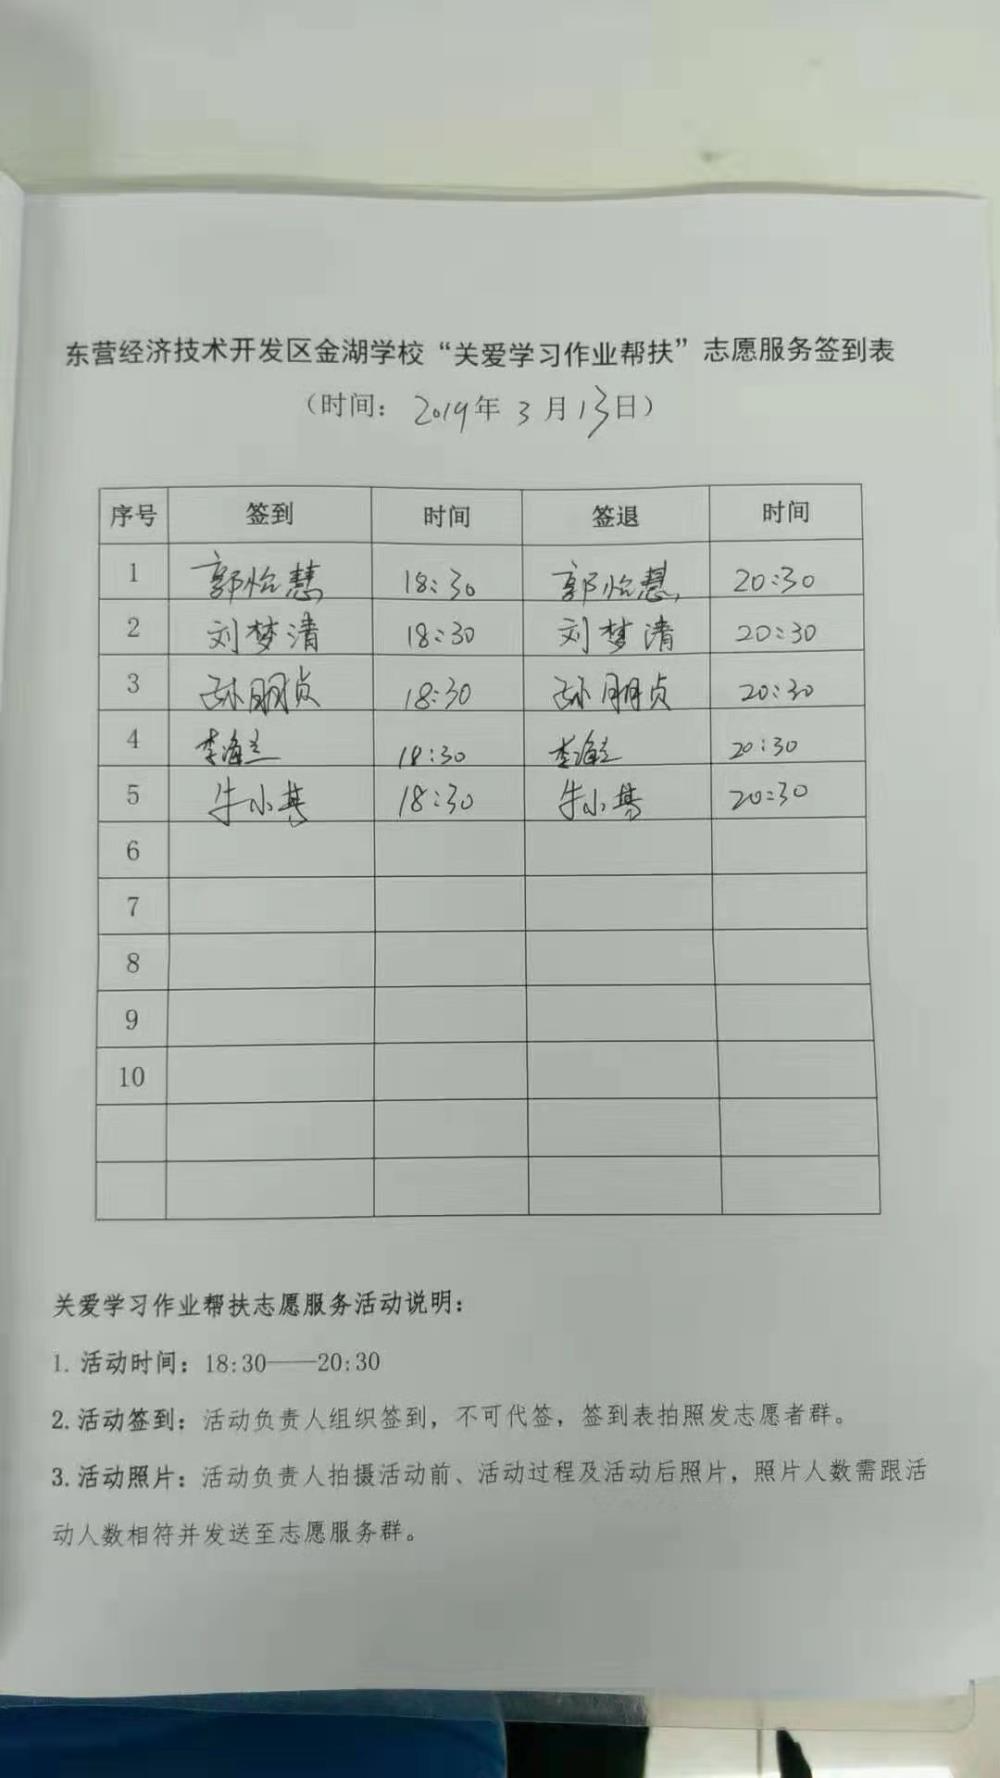 东营经济技术开发区金湖学校“关爱学习作业帮扶”志愿服务签到表
（时间：2019年 3 月 13日）
序号 签到 时间 签退 时间
1 郭怡慧 18:30 郭怡慧 20:30
2 刘梦清 18:30 刘梦清 20:30
3 孙朋贞 18:30 孙朋贞 20:30
4 李海 18:30 李海 20:30
5 牛小 18:30 牛小 20:30
6
7
8
9
10
关爱学习作业帮扶志愿服务活动说明：
1. 活动时间：18:30——20:30
2. 活动签到：活动负责人组织签到，不可代签，签到表拍照发志愿者群。
3. 活动照片：活动负责人拍摄活动前、活动过程及活动后照片，照片人数需跟活
动人数相符并发送至志愿服务群。